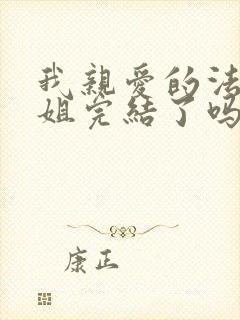 我親愛的法
姐完結了吗
康正